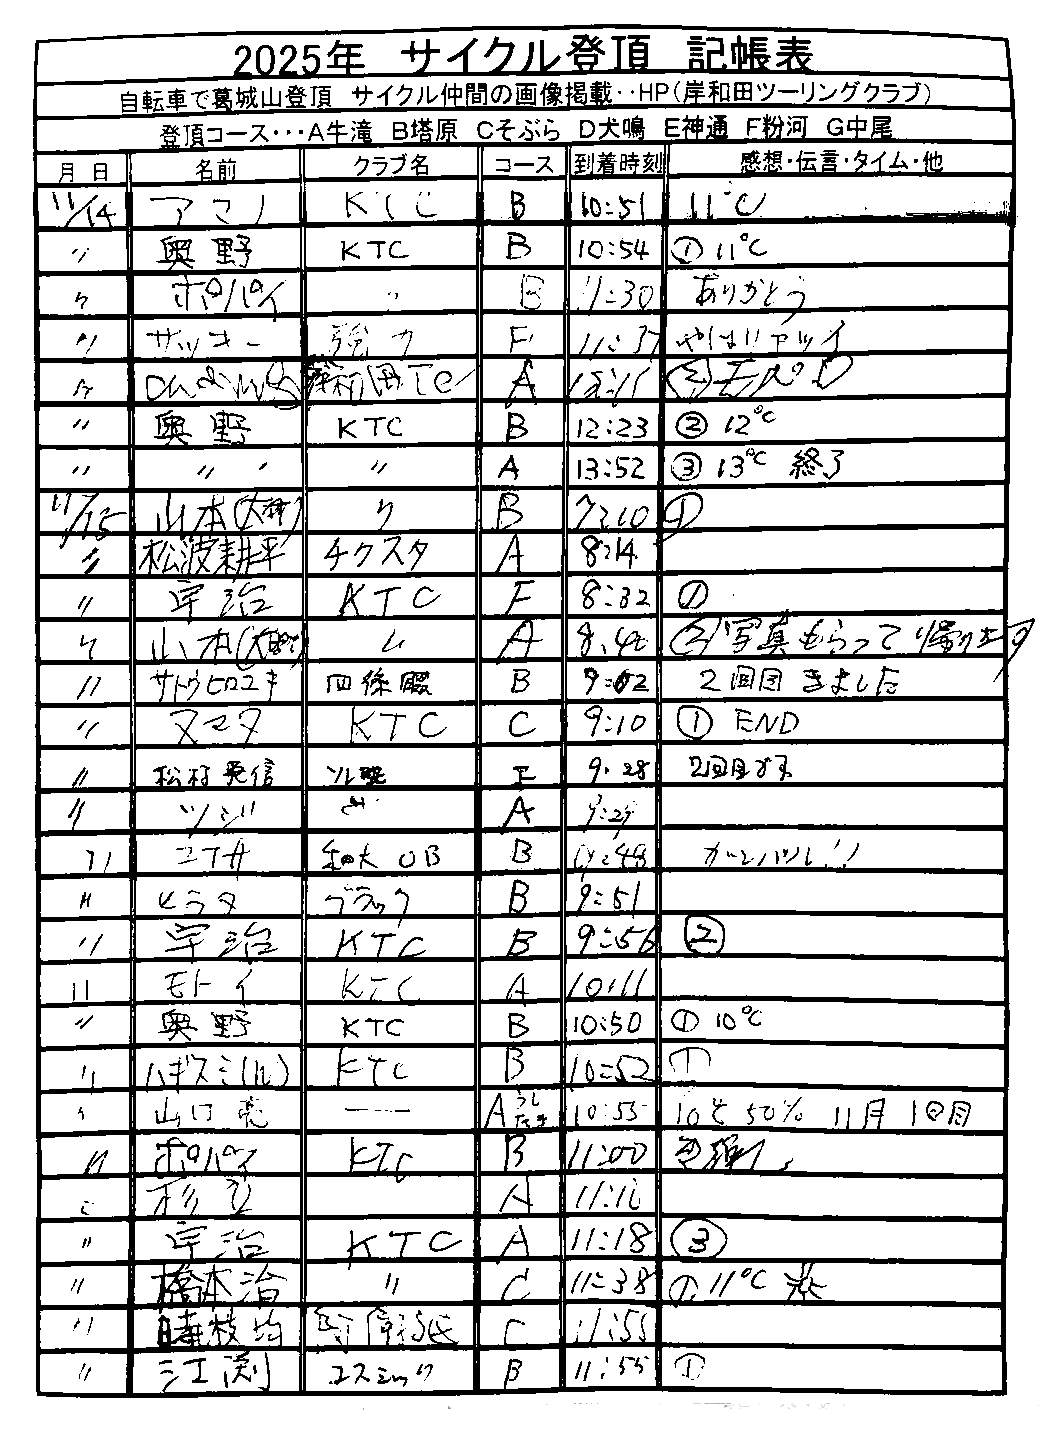 2025年 サイクル登頂 記帳表
自転車で葛城山登頂 サイクル仲間の画像掲載‥HP(岸和田ツーリングクラブ)
登頂コース・・・A牛滝 B塔原 Cそぶら D犬鳴 E神通 F粉河 G中尾
月 日 名前 クラブ名 コース 到着時刻 感想・伝言・タイム・他
11/14 アマノ KTC B 10:51 11℃
〃 奥野 KTC B 10:54 ① 11℃
〃 ポパイ 〃 B 11:30 ありがとう
〃 サッキー 強力 F 11:37
〃 A
〃 奥野 KTC B 12:23 ② 12℃
〃 〃 〃 〃 A 13:52 ③ 13℃ 終了
11/15 山本(大神) 〃 B 7:10 ①
〃 松波耕平 チクスタ A 8:14
〃 宇治 KTC F 8:32 ①
〃 山本 〃 A 8:40 ② 写真もらって帰ります
〃 サトウヒロユキ 四條畷 B 9:02 2回目きました
〃 ヌマタ KTC C 9:10 ① END
〃 松村 信 E 9:28 2回目です
〃 ツジ A 9:29
〃 和大OB B :48 ガンバル!!
〃 ヒラタ ブラック B 9:51
〃 宇治 KTC B 9:56 ②
〃 モトイ KTC A 10:11
〃 奥野 KTC B 10:50 ① 10℃
〃 ハギスミ(ル) KTC B 10:52 ①
〃 山口 亮 ーーー A うしたき 10:55 10を50% 11月 1回目
〃 ポパイ KTC B 11:00
〃 杉 A 11:16
〃 宇治 KTC A 11:18 ③
〃 橋本治 〃 C 11:38 ① 11℃
〃 枝 均 C 11:55
〃 江渕 コスミック B 11:55 ①